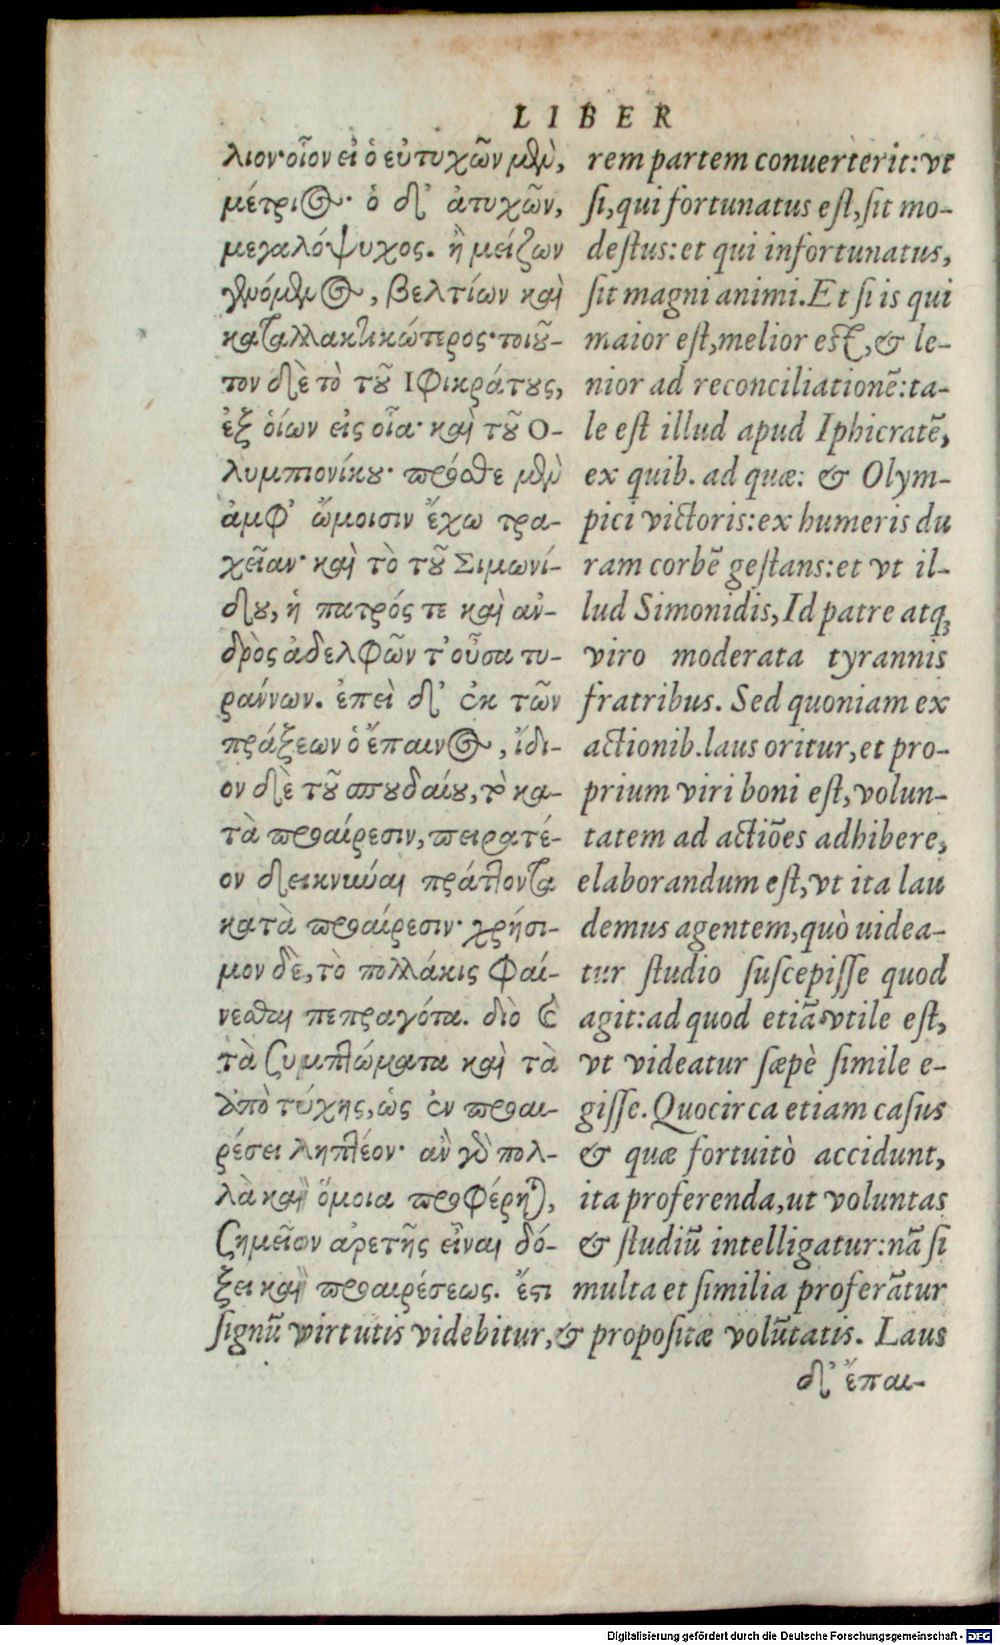 LIBER
λιον· οἷον εἰ ὁ εὐτυχῶν μὲν,
μέτριος· ὁ δ' ἀτυχῶν,
μεγαλόψυχος. ἢ μείζων
γενόμενος, βελτίων καὶ
καταλλακτικώτερος· τοιοῦ-
τον δὲ τὸ τοῦ Ιφικράτους,
ἐξ ὁίων εἰς οἷα· καὶ τοῦ Ο-
λυμπιονίκου· πρόσθε μὲν
ἀμφ' ὤμοισιν ἔχω τρα-
χεῖαν· καὶ τὸ τοῦ Σιμωνί-
δου, ἡ πατρός τε καὶ ἀν-
δρὸς ἀδελφῶν τ' οὖσα τυ-
ράννων. ἐπεὶ δ' ἐκ τῶν
πράξεων ὁ ἔπαινος, ἴδι-
ον δὲ τοῦ σπουδαίου, τὸ κα-
τὰ προαίρεσιν, πειρατέ-
ον δεικνύναι πράττοντα
κατὰ προαίρεσιν· χρήσι-
μον δὲ, τὸ πολλάκις φαί-
νεσθαι πεπραγότα. διὸ καὶ
τὰ συμπτώματα καὶ τὰ
ἀπὸ τύχης, ὡς ἐν προαι-
ρέσει ληπτέον· ἂν γὰρ πολ-
λὰ καὶ ὅμοια προφέρηται,
σημεῖον ἀρετῆς εἶναι δό-
ξει καὶ προαιρέσεως. ἔστι
rem partem conuerterit: vt
si, qui fortunatus est, sit mo-
destus: et qui infortunatus,
sit magni animi. Et si is qui
maior est, melior est, & le-
nior ad reconciliationẽ: ta-
le est illud apud Iphicratẽ,
ex quib. ad quæ: & Olym-
pici victoris: ex humeris du
ram corbẽ gestans: et vt il-
lud Simonidis, Id patre atq;
viro moderata tyrannis
fratribus. Sed quoniam ex
actionib. laus oritur, et pro-
prium viri boni est, volun-
tatem ad actiões adhibere,
elaborandum est, vt ita lau
demus agentem, quò uidea-
tur studio suscepisse quod
agit: ad quod etiã vtile est,
vt videatur sæpè simile e-
gisse. Quocirca etiam casus
& quæ fortuitò accidunt,
ita proferenda, ut voluntas
& studiũ intelligatur: nã si
multa et similia proferãtur
signũ virtutis videbitur, & propositæ volũtatis. Laus
δ' ἔπαι-
Digitalisierung gefördert durch die Deutsche Forschungsgemeinschaft - DFG